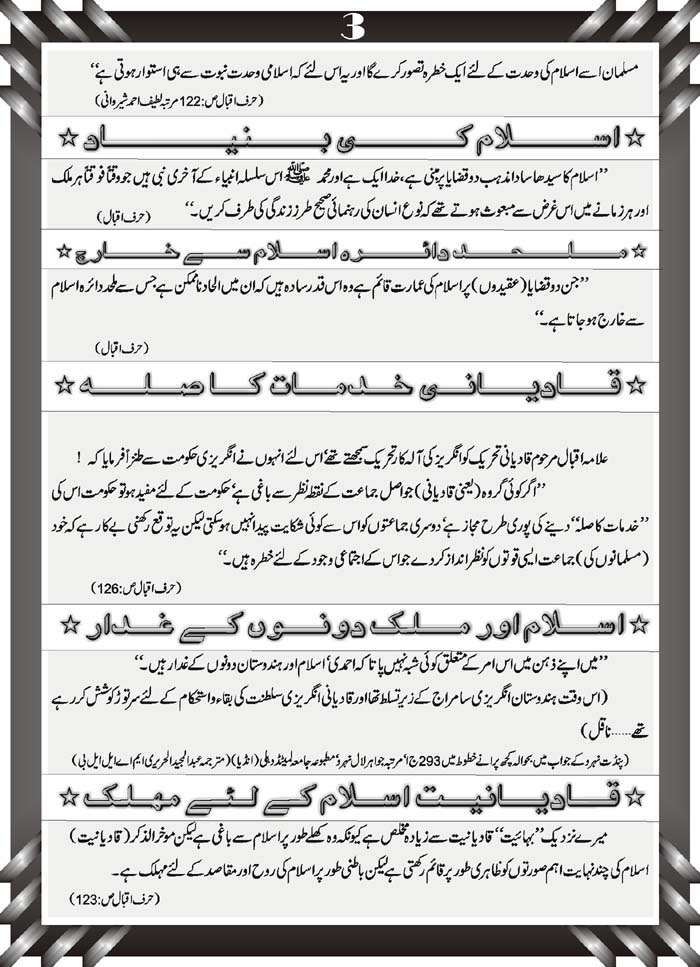 3
مسلمان اسے اسلام کی وحدت کے لئے ایک خطرہ تصور کرے گا اور یہ اس لئے کہ اسلامی وحدت نبوت سے ہی استوار ہوتی ہے‘‘
(حرف اقبال ص:122 مرتبہ لطیف احمد شیروانی)
☆ اسلام کی بنیاد ☆
’’اسلام کا سیدھا سادا مذہب دو قضایا پر مبنی ہے، خدا ایک ہے اور محمد ﷺ اس سلسلہ انبیاء کے آخری نبی ہیں جو وقتاً فوقتاً ہر ملک
اور ہر زمانے میں اس غرض سے مبعوث ہوتے تھے کہ نوع انسان کی رہنمائی صحیح طرز زندگی کی طرف کریں۔‘‘
(حرف اقبال)
☆ ملحد دائرہ اسلام سے خارج ☆
’’جن دو قضایا (عقیدوں) پر اسلام کی عمارت قائم ہے وہ اس قدر سادہ ہیں کہ ان میں الحاد ناممکن ہے جس سے ملحد دائرہ اسلام
سے خارج ہو جاتا ہے۔‘‘
(حرف اقبال)
☆ قادیانی خدمات کا صلہ ☆
علامہ اقبال مرحوم قادیانی تحریک کو انگریز کی آلہ کار تحریک سمجھتے تھے‘ اس لئے انہوں نے انگریزی حکومت سے طنزاً فرمایا کہ !
’’اگر کوئی گروہ (یعنی قادیانی) جو اصل جماعت کے نقطہ نظر سے باغی ہے‘ حکومت کے لئے مفید ہو تو حکومت اس کی
’’خدمات کا صلہ‘‘ دینے کی پوری طرح مجاز ہے‘ دوسری جماعتوں کو اس سے کوئی شکایت پیدا نہیں ہو سکتی لیکن یہ توقع رکھنی بے کار ہے کہ خود
(مسلمانوں کی) جماعت ایسی قوتوں کو نظر انداز کر دے جو اس کے اجتماعی وجود کے لئے خطرہ ہیں۔‘‘
(حرف اقبال ص:126)
☆ اسلام اور ملک دونوں کے غدار ☆
’’میں اپنے ذہن میں اس امر کے متعلق کوئی شبہ نہیں پاتا کہ احمدی‘ اسلام اور ہندوستان دونوں کے غدار ہیں۔‘‘
(اس وقت ہندوستان انگریزی سامراج کے زیر تسلط تھا اور قادیانی انگریزی سلطنت کی بقاء و استحکام کے لئے سر توڑ کوشش کر رہے
تھے......ناقل)
(پنڈت نہرو کے جواب میں بحوالہ کچھ پرانے خطوط میں 293 ج ا‘ مرتبہ جواہر لال نہرو‘ مطبوعہ جامعہ لمیٹڈ دہلی (انڈیا) (مترجمہ عبدالمجید الحریری ایم اے ایل ایل بی)
☆ قادیانیت اسلام کے لئے مہلک ☆
میرے نزدیک ’’بہائیت‘‘ قادیانیت سے زیادہ مخلص ہے کیونکہ وہ کھلے طور پر اسلام سے باغی ہے لیکن موخر الذکر (قادیانیت)
اسلام کی چند نہایت اہم صورتوں کو ظاہری طور پر قائم رکھتی ہے لیکن باطنی طور پر اسلام کی روح اور مقاصد کے لئے مہلک ہے۔
(حرف اقبال ص:123)